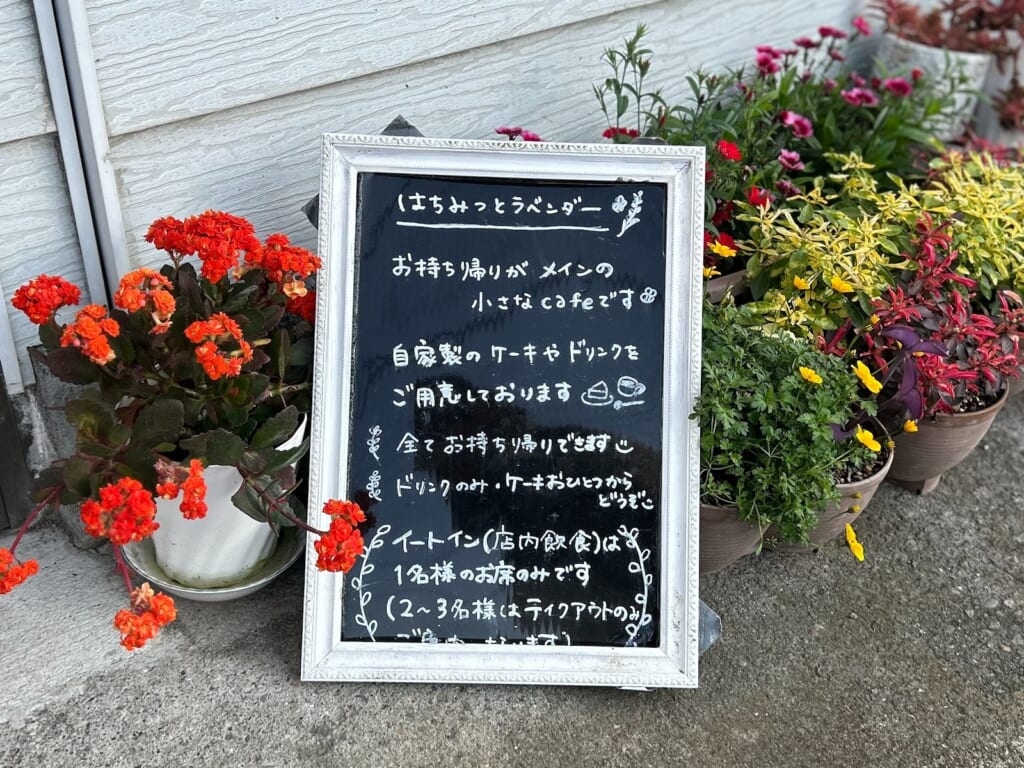 はちみつとラベンダー
お持ち帰りが メインの
小さな cafeです
自家製の ケーキや ドリンクを
ご用意しております
全て お持ち帰りできます
ドリンクのみ・ケーキおひとつから
どうぞ
イートイン(店内飲食)は
1名様のお席のみです
(2～3名様はテイクアウトのみ